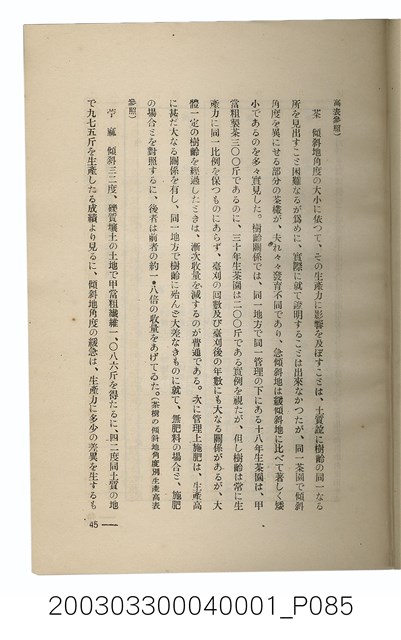 高表參照)
茶　傾斜地角度の大小に依つて、その生產力に影響を及ぼすことは、土質竝に樹齡の同一なる
所を見出すこと困難なるが爲めに、實際に就て證明することは出來なかつたが、同一茶園で傾斜
角度を異にせる部分の茶欉が、夫れ々々發育不同であり、急傾斜地は緩傾斜地に比べて著しく矮
小であるのを多々實見した。樹齡關係では、同一地方で同一管理の下にある十八年生茶園は、甲
當粗製茶三〇〇斤であるのに、三十年生茶園は二〇〇斤である實例を視たが、但し樹齡は常に生
產力に同一比例を保つものにあらず、臺刈の回數及び臺刈後の年數にも大なる關係があるが、大
體一定の樹齡を經過したときは、漸次收量を減ずるのが普通である。次に管理上施肥は、生產高
に甚だ大なる關係を有し、同一地方で樹齡に殆んど大差なきものに就て、無肥料の場合と、施肥
の場合とを對照するに、後者は前者の約一・八倍の收量をあげてゐた。(茶樹の傾斜地角度別生產高表
參照)
苧麻　傾斜三二度、礫質壤土の土地で甲當粗纖維一、〇八六斤を得たるに、四二度同土質の地
で九七五斤を生產したる成績より見るに、傾斜地角度の緩急は、生產力に多少の差異を生ずるも
45
200303300040001_P085